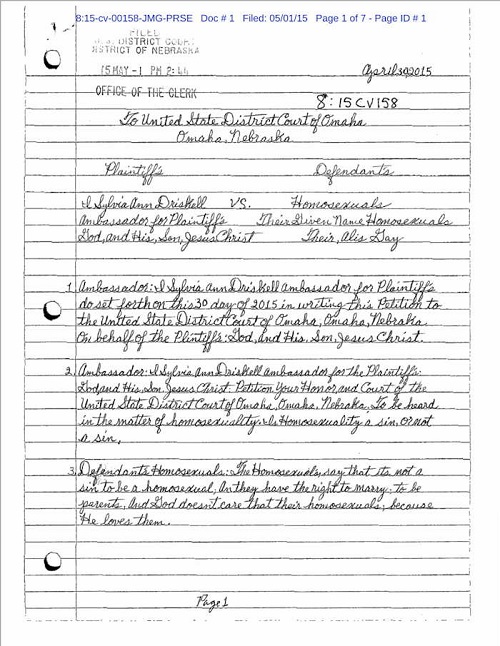 8:15-cv-00158-JMG-PRSE Doc # 1 Filed: 05/01/15 Page 1 of 7 - Page ID # 1
FILED
DISTRICT COURT
DISTRICT OF NEBRASKA
15 MAY -1 PM 2:44
April 30, 2015
OFFICE OF THE CLERK
8:15CV158
To United State District Court of Omaha
Omaha, Nebraska
Plaintiff's Defendants
I Sylvia Ann Driskell VS. Homosexuals
Ambassador for Plaintiffs Their Given Name Homosexuals
God, and His, Son, Jesus Christ Their, Alis Gay
1 Ambassador: I Sylvia Ann Driskell ambassador for Plaintiffs
do set forth on this 30 day of 2015 in writing this Petition to
the United State District Court of Omaha, Omaha, Nebraka.
On behalf of the Plintiffs: God, and His, Son, Jesus Christ.
2. Ambassador: I Sylvia Ann Driskell ambassador for the Plaintiffs:
God and His, Son, Jesus Christ. Petition Your Honor, and Court of the
United State District Court of Omaha, Omaha, Nebraka. To be heard
in the matter of homosexuality. Is Homosexuality a sin, or not
a sin.
3. Defendants Homosexuals: The Homosexuals say that its not a
sin to be a homosexual, An they have the right to marry; to be
parents, And God doesn't care that their homosexuals; because
He loves them.
Page 1